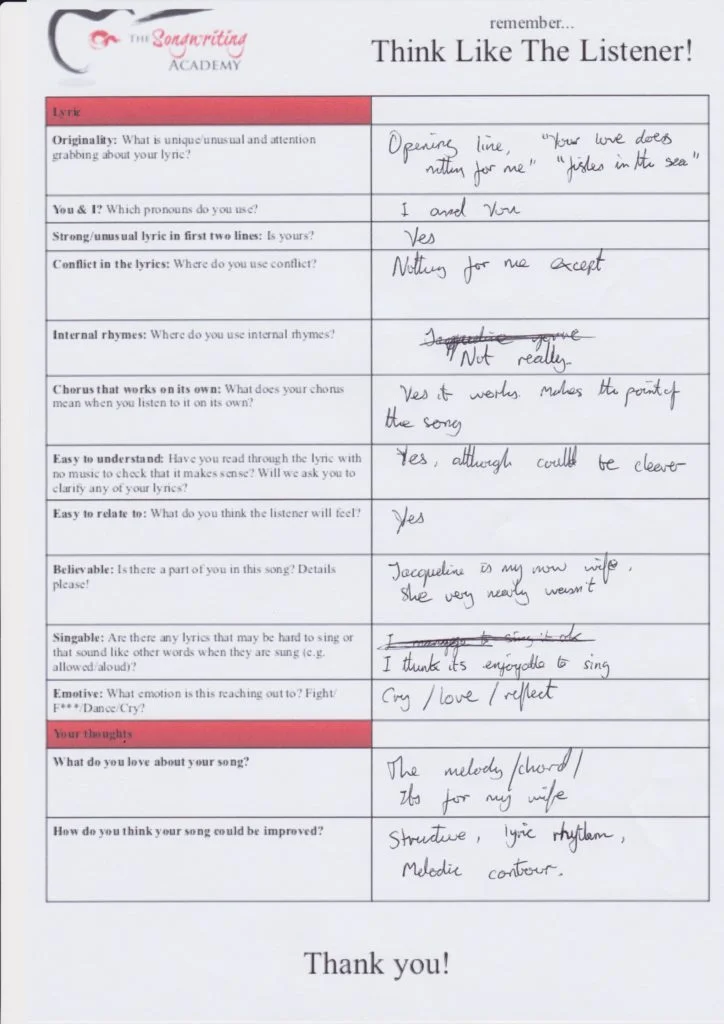 THE Songwriting
ACADEMY
remember...
Think Like The Listener!
Lyric
Originality: What is unique/unusual and attention
grabbing about your lyric?
Opening line, "Your love does
nothin for me" "fishes in the sea"
You & I? Which pronouns do you use?
I and You
Strong/unusual lyric in first two lines: Is yours?
Yes
Conflict in the lyrics: Where do you use conflict?
Nothing for me except
Internal rhymes: Where do you use internal rhymes?
Not really
Chorus that works on its own: What does your chorus
mean when you listen to it on its own?
Yes it works. Makes the point of
the song
Easy to understand: Have you read through the lyric with
no music to check that it makes sense? Will we ask you to
clarify any of your lyrics?
Yes, although could be clever
Easy to relate to: What do you think the listener will feel?
Yes
Believable: Is there a part of you in this song? Details
please!
Jacqueline is my now wife.
She very nearly wasn't
Singable: Are there any lyrics that may be hard to sing or
that sound like other words when they are sung (e.g.
allowed/aloud)?
I manage to sing it ok
I think its enjoyable to sing
Emotive: What emotion is this reaching out to? Fight/
F***/Dance/Cry?
Cry / love / reflect
Your thoughts
What do you love about your song?
The melody / chord /
Its for my wife
How do you think your song could be improved?
Structure, lyric rhythm,
Melodic contour.
Thank you!